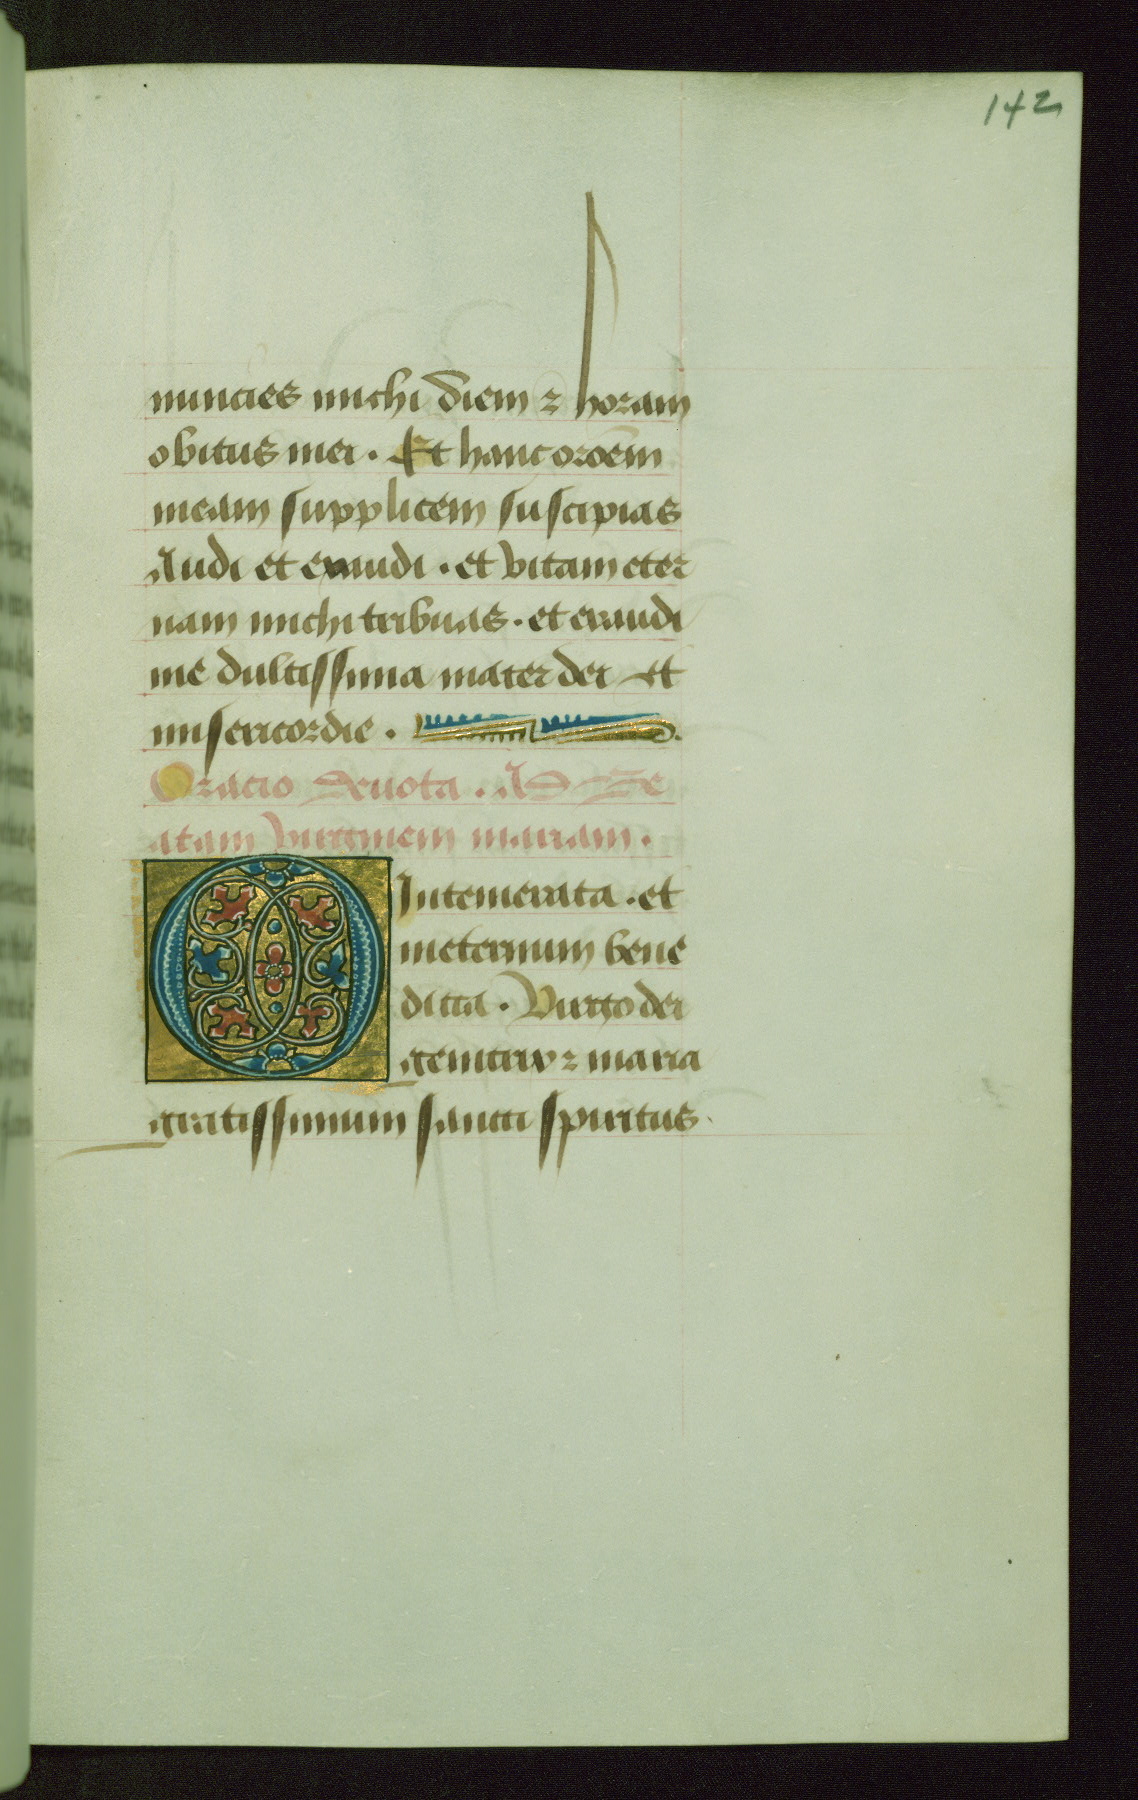 142
nuncies michi diem ⁊ horam
obitus mei. Et hanc oroẽm
meam supplicem suscipias
Audi et exaudi. et vitam eter
nam michi tribuas. et exaudi
me dulcissima mater dei et
misericordie.
Oracio deuota. Ad Be
atam virginem mariam.
O Intemerata. et
ineternum bene
dicta. Virgo dei
genitrix ⁊ maria
gratissimum sancti spiritus